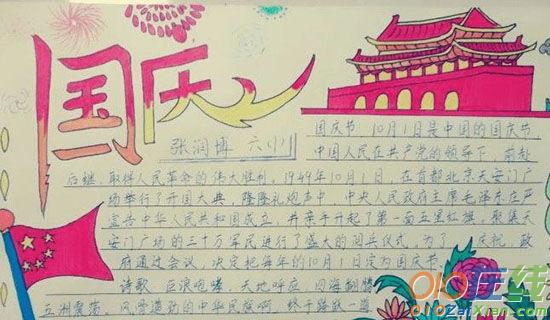 国庆
张润博 六(1)
国庆节 10月1日是中国的国庆节,
中国人民在共产党的领导下,前赴
后继,取得人民革命的伟大胜利,1949年10月1日,在首都北京天安门广
场举行了开国大典,隆隆礼炮声中,中央人民政府主席毛泽东庄严
宣告中华人民共和国成立,并亲手升起了第一面五星红旗,聚集天
安门广场的三十万军民进行了盛大的阅兵仪式,为了 庆祝,政
府通过会议,决定把每年的10月1日定为国庆节.
诗歌 巨浪咆哮,天地呼应 四海翻腾
五洲震荡,风雷激动的中华民族啊 终于踏
在线
ZaiXian.com